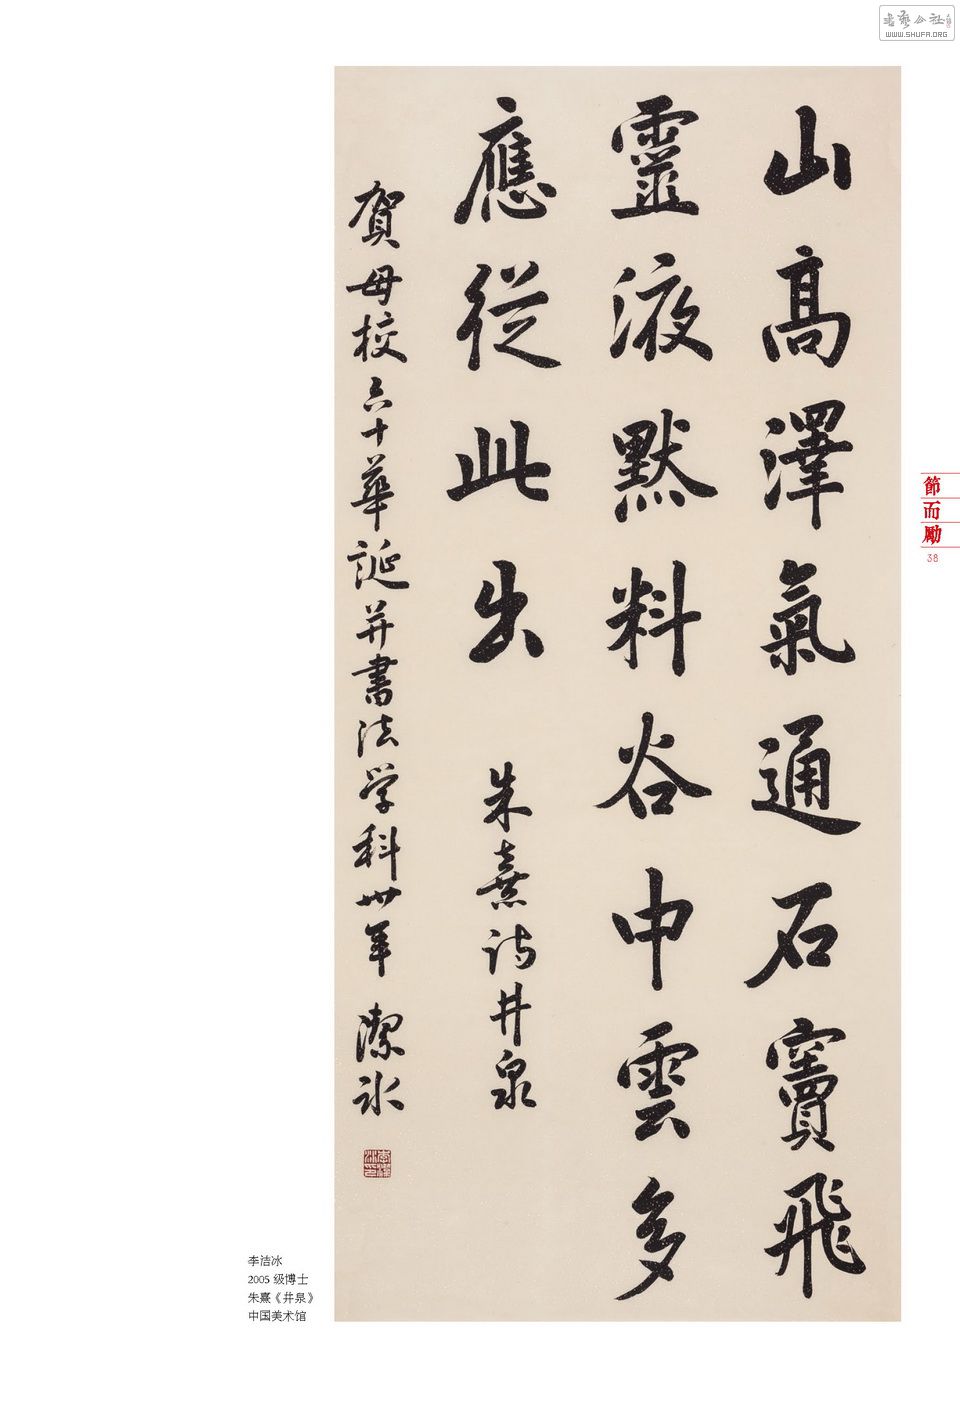 山高澤氣通石竇飛
靈液默料谷中雲多
應從此出
朱熹诗井泉
賀母校六十華誕并書法学科卅年
潔冰
李洁冰
2005 级博士
朱熹《井泉》
中国美术馆
節而勵
38
WWW.SHUFA.ORG